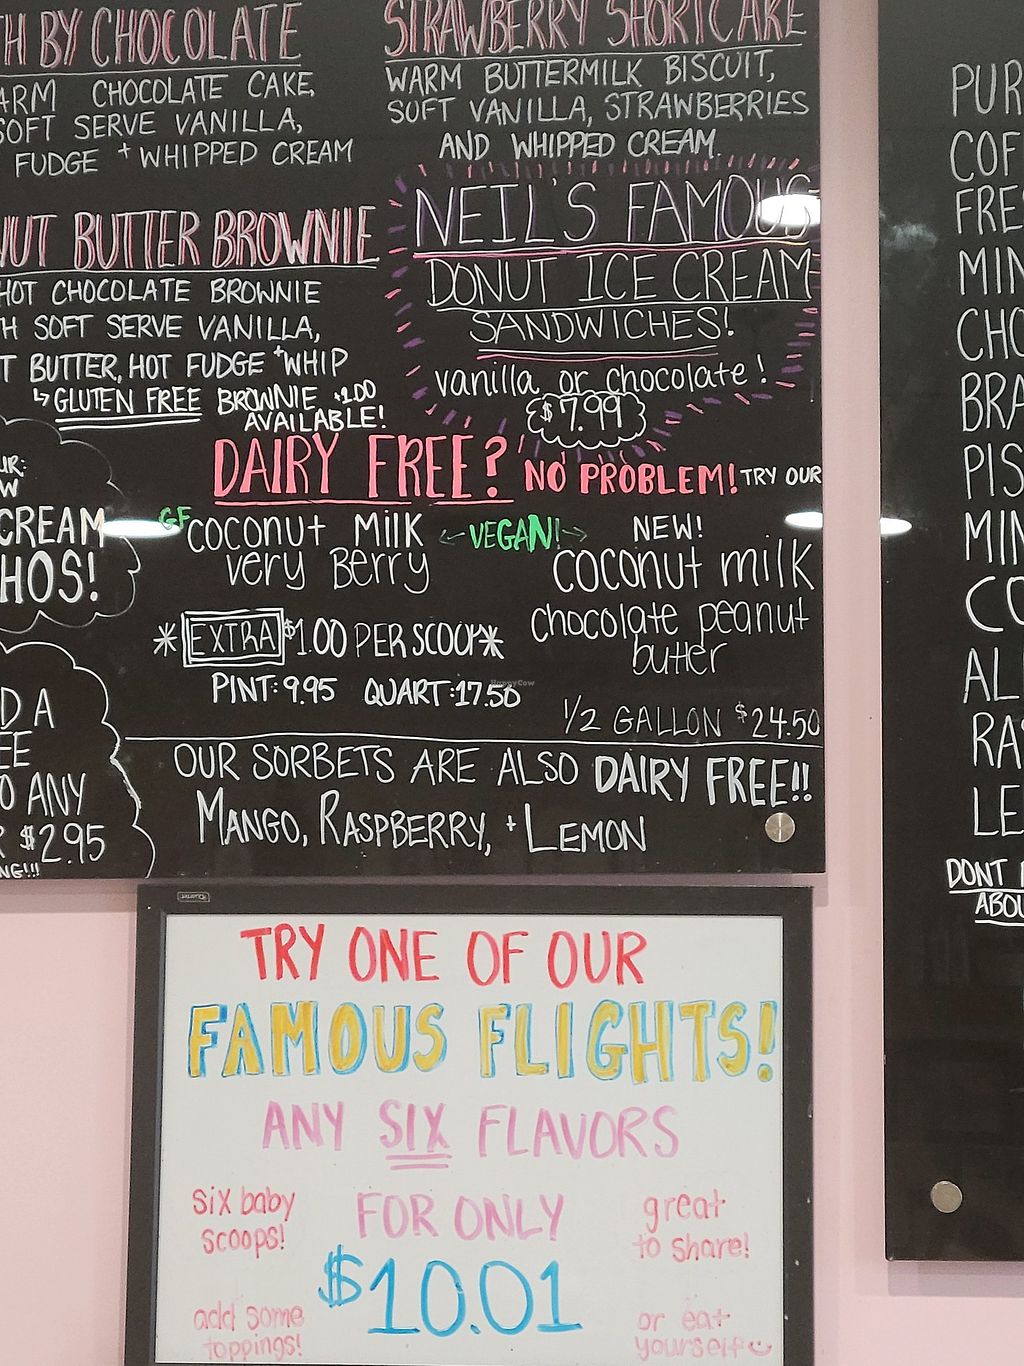 H BY CHOCOLATE
ARM CHOCOLATE CAKE,
SOFT SERVE VANILLA,
FUDGE + WHIPPED CREAM
STRAWBERRY SHORTCAKE
WARM BUTTERMILK BISCUIT,
SOFT VANILLA, STRAWBERRIES
AND WHIPPED CREAM
NUT BUTTER BROWNIE
HOT CHOCOLATE BROWNIE
H SOFT SERVE VANILLA,
T BUTTER, HOT FUDGE + WHIP
↳ GLUTEN FREE BROWNIE +1.00
AVAILABLE!
NEIL'S FAMOUS
DONUT ICE CREAM
SANDWICHES!
vanilla or chocolate!
$7.99
DAIRY FREE? NO PROBLEM! TRY OUR
UR:
W
CREAM
HOS!
GF coconut milk
very Berry
← VEGAN! →
NEW!
coconut milk
chocolate peanut
butter
* EXTRA $1.00 PER SCOOP *
PINT: 9.95 QUART: 17.50
HappyCow
1/2 GALLON $24.50
D A
EE
O ANY
R $2.95
NG!!!
OUR SORBETS ARE ALSO DAIRY FREE!!
MANGO, RASPBERRY, + LEMON
PUR
COF
FRE
MIN
CHO
BRA
PIS
MIN
CO
AL
RA
LE
DONT
ABOU
Quartet
TRY ONE OF OUR
FAMOUS FLIGHTS!
ANY SIX FLAVORS
FOR ONLY
$10.01
six baby
scoops!
great
to share!
add some
toppings!
or eat
yourself